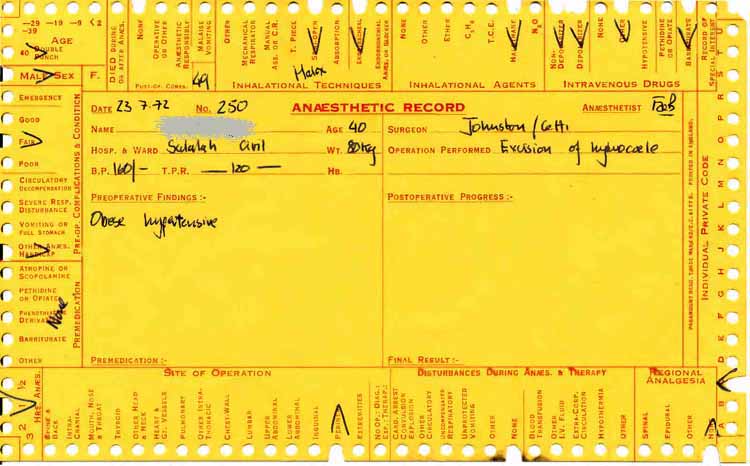 -29 -19 -9 <2
-39
40
AGE
DOUBLE
PUNCH
MALE SEX F.
DIED DURING
OR AFTER ANÆS.
NONE
OPERATIVE
OR OTHER
ANÆSTHETIC
RESPONSIBLY
MALAISE
VOMITING
OTHER
POST-OP. COMPS.
49
MECHANICAL
RESPIRATOR
MANUAL
ASS. OR C.R.
T. PIECE
ABSORPTION
Halox
INHALATIONAL TECHNIQUES
NONE
OTHER
OTHER
T.C.E.
N2O
INHALATIONAL AGENTS
NON-
DEPOLARISER
DEPOLARISER
NONE
OTHER
HYPOTENSIVE
PETHIDINE
OR OPIATE
INTRAVENOUS DRUGS
RECORD OF
SPECIAL INTEREST
DATE 23.7.72 No. 250 ANÆSTHETIC RECORD ANÆSTHETIST
NAME AGE 40 SURGEON Johnston /
HOSP. & WARD Salalah Civil WT. 80kg OPERATION PERFORMED Excision of hydrocoele
B.P. 160/- T.P.R. — 120 — HB.
PREOPERATIVE FINDINGS :- POSTOPERATIVE PROGRESS :-
Obese hypertensive
PREMEDICATION :- FINAL RESULT :-
PRE-OP. COMPLICATIONS & CONDITION
EMERGENCY
GOOD
FAIR
POOR
CIRCULATORY
DECOMPENSATION
SEVERE RESP.
DISTURBANCE
VOMITING OR
FULL STOMACH
OTHER ANÆS.
HANDICAP
PREMEDICATION
ATROPINE OR
SCOPOLAMINE
PETHIDINE
OR OPIATE
None
BARBITURATE
OTHER
INDIVIDUAL PRIVATE CODE
PRINTED IN ENGLAND.
A B C D E F G H I J K L M N O P R S T U
3 2 1 ½
HRS ANÆS.
SITE OF OPERATION
SPINE &
BACK
INTRA
CRANIAL
MOUTH, NOSE
& THROAT
THYROID
OTHER HEAD
& NECK
HEART &
GT. VESSELS
PULMONARY
OTHER INTRA-
THORACIC
CHEST-WALL
LUMBAR
UPPER
ABDOMINAL
LOWER
ABDOMINAL
INGUINAL
EXTREMITIES
NO OP.: DIAG.:
EXP.: THERAP.:
DISTURBANCES DURING ANÆS. & THERAPY
CARD. ARREST
CONVULSION
EXPLOSION
OTHER
CIRCULATORY
UNCOMPENSATED
RESPIRATORY
UNPROTECTED
VOMITING
OTHER
NONE
BLOOD
TRANSFUSION
OTHER
I.V. FLUID
EXTRA-CORP.
CIRCULATION
HYPOTHERMIA
OTHER
REGIONAL
ANALGESIA
SPINAL
EPIDURAL
OTHER